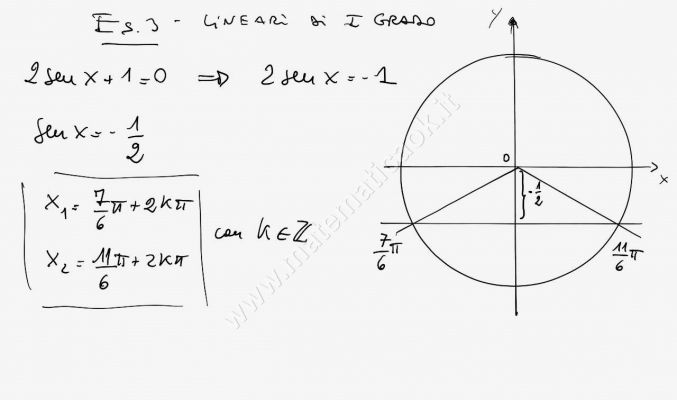 Es.3 - LINEARI DI I GRADO
2 sen x + 1 = 0 ⇒ 2 sen x = - 1
sen x = - 1/2
x₁ = 7/6 π + 2kπ
x₂ = 11/6 π + 2kπ
con k ∈ ℤ
y
0
x
- 1/2
7/6 π
11/6 π
www.matematicaok.it